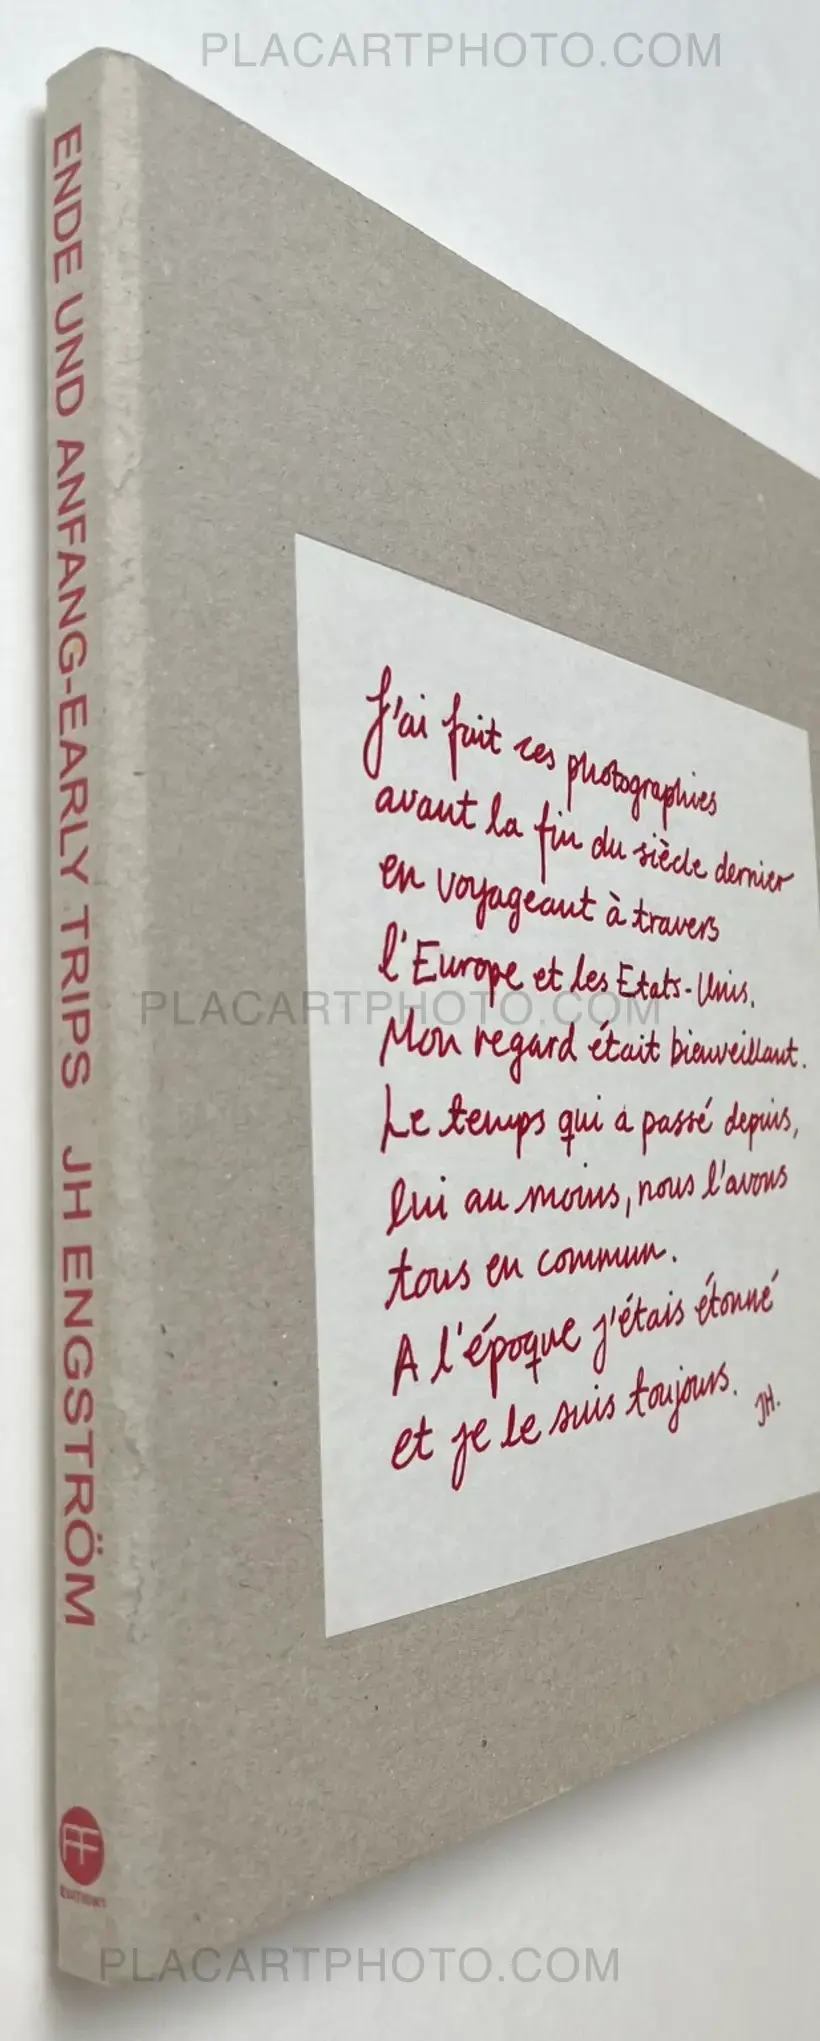 PLACARTPHOTO.COM
ENDE UND ANFANG-EARLY TRIPS JH ENGSTRÖM
J'ai fait ces photographies
avant la fin du siècle dernier
en voyageant à travers
l'Europe et les Etats-Unis.
Mon regard était bienveillant.
Le temps qui a passé depuis,
lui au moins, nous l'avons
tous en commun.
A l'époque j'étais étonné
et je le suis toujours. JH.
PLACARTPHOTO.COM
FF
EDITIONS
PLACARTPHOTO.COM